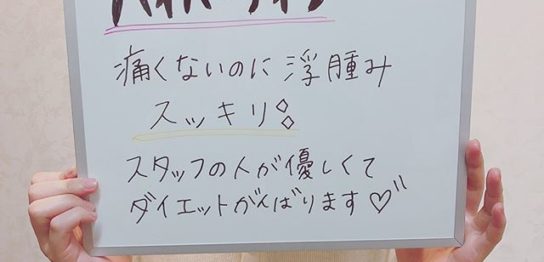 痛くないのに浮腫み
スッキリ
スタッフの人が優しくて
ダイエットがんばります♡